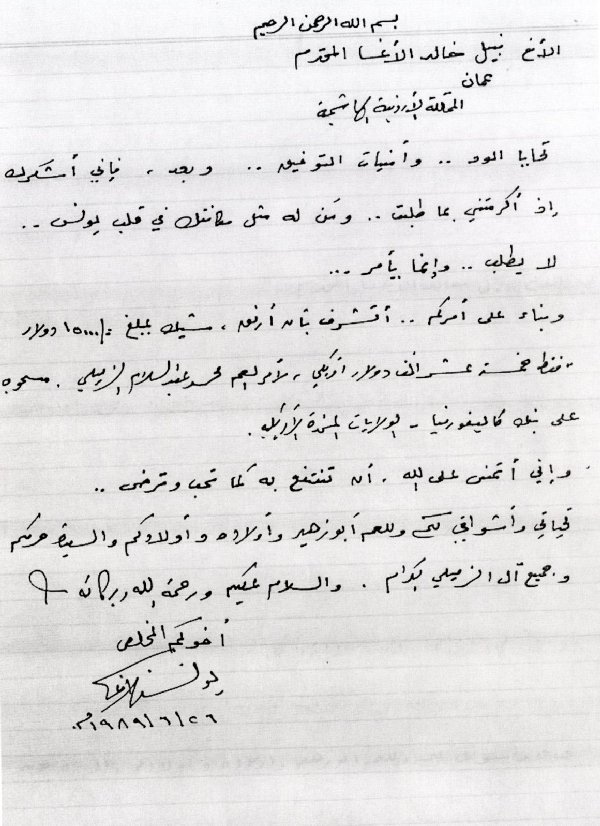 بسم الله الرحمن الرحيم
الأخ نبيل خالد الأغا المحترم
عمان
المملكة الأردنية الهاشمية
تحايا الود .. وأمنيات التوفيق .. وبعد ، فإني أشكرك
إذ أكرمتني بما طلبت .. ومن له مثل مكانتك في قلب يونس ..
لا يطلب .. وإنما يأمر ...
وبناء على أمركم .. أتشرف بأن أرفق ، شيك بمبلغ /١٥٠٠٠ دولار
"فقط خمسة عشر الف دولار أمريكي ، لأمر العم محمد عبد السلام الزميلي . مسحوبه
على بنك كاليفورنيا - الولايات المتحدة الأمريكية .
وإني أتمنى على الله . أن تنتفع به كما تحب وترضى ..
تحياتي وأشواقي لكم وللعم أبو زهير وأولاده وأولادكم والسيدة حرمكم
وجميع آل الزميلي الكرام . والسلام عليكم ورحمة الله وبركاته
أخوكم المخلص
يونس
٢٦/٦/١٩٨٩م